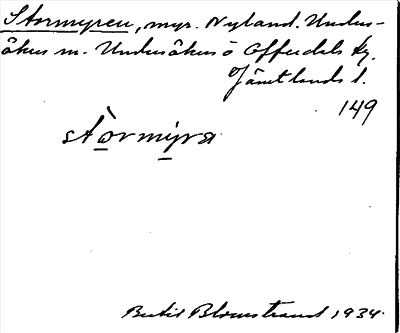 Stormyren, myr. Nyland. Unders-
åkers m. Undersåkers o Offerdals tg.
Jämtlands l.
149
stòrmyra
Bertil Blomstrand 1934.